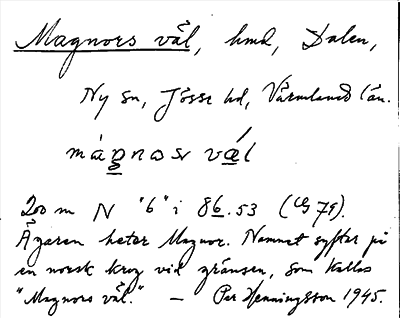 Magnors väl, hmd, Dalen,
Ny sn, Jösse hd, Värmlands län.
màgnasr väl
200 m N "6" i 86.53 (LG 79).
Ägaren heter Magnor. Namnet syftar på
en norsk krog vid gränsen, som kallas
"Magnors väl." — Per Henningsson 1945.